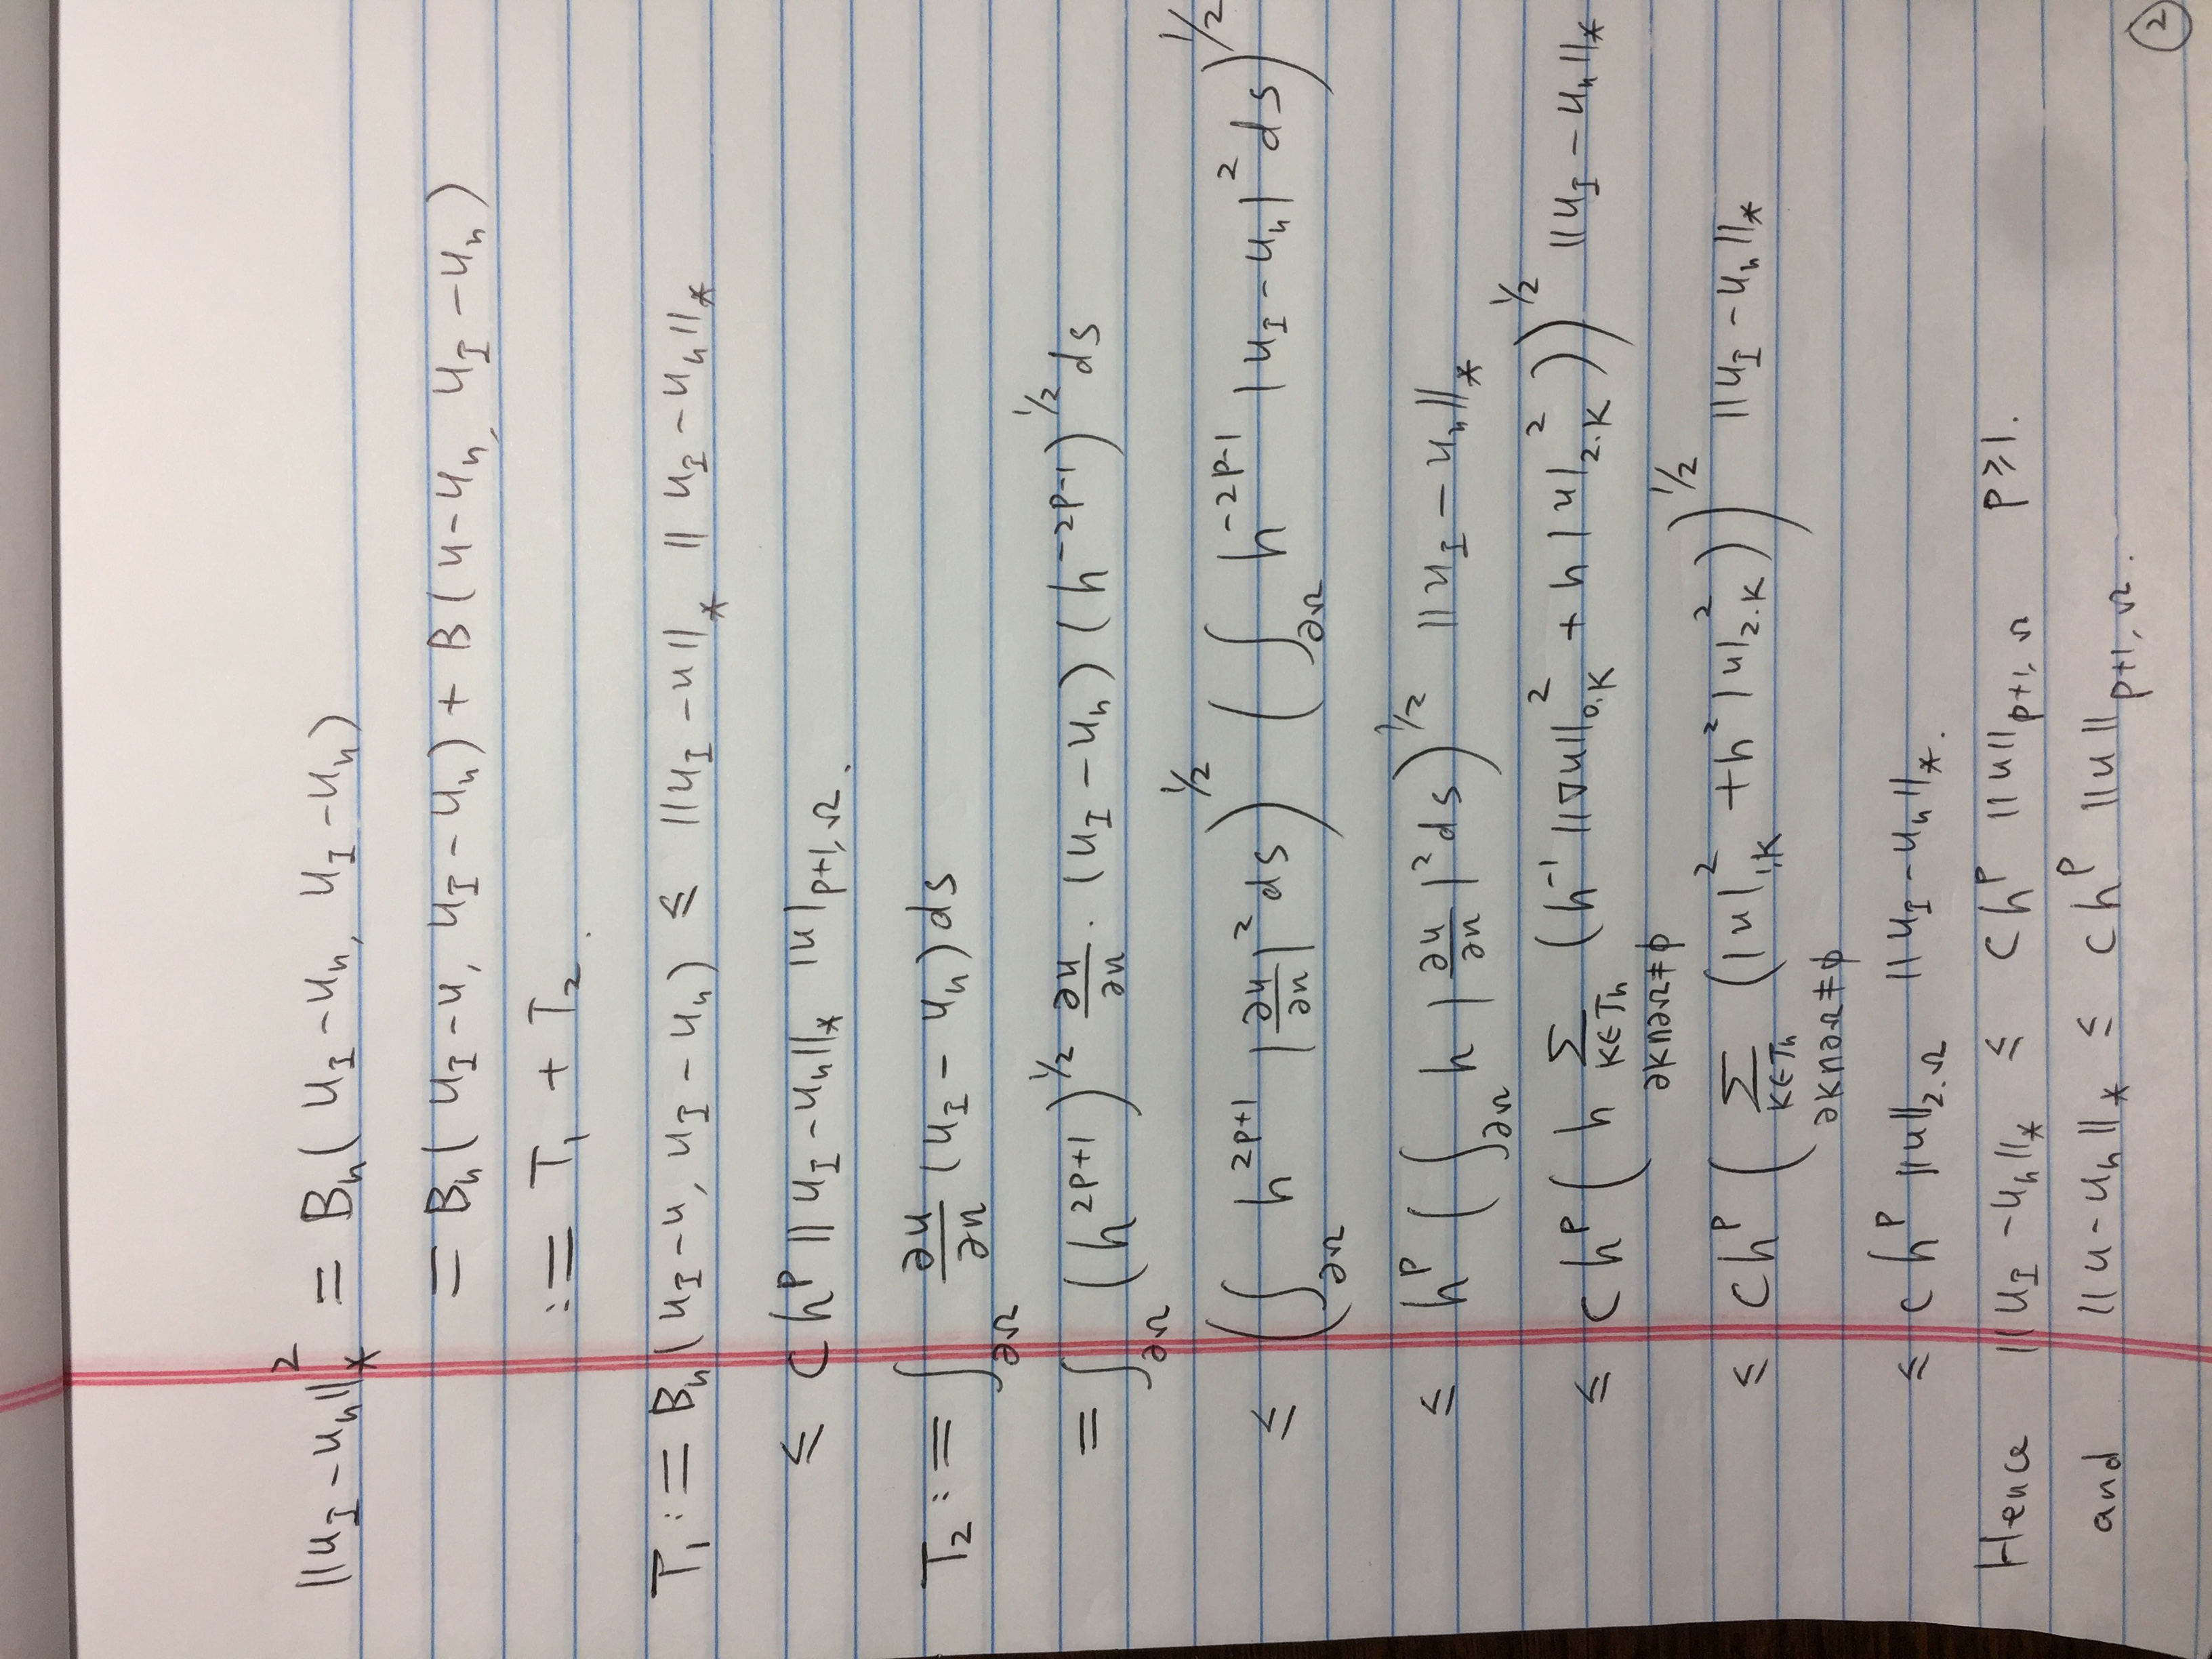 ‖u_I − u_h‖_*^2 = B_h( u_I − u_h, u_I − u_h)
= B_h( u_I − u, u_I − u_h) + B( u − u_h, u_I − u_h)
:= T_1 + T_2.
T_1 := B_h( u_I − u, u_I − u_h) ≤ ‖u_I − u‖_* ‖u_I − u_h‖_*
≤ C h^p ‖u_I − u_h‖_* |u|_{p+1,Ω}.
T_2 := ∫_{∂Ω} ∂u/∂n (u_I − u_h) ds
= ∫_{∂Ω} (h^{2p+1})^{1/2} ∂u/∂n · (u_I − u_h) (h^{-2p-1})^{1/2} ds
≤ (∫_{∂Ω} h^{2p+1} |∂u/∂n|^2 ds)^{1/2} (∫_{∂Ω} h^{-2p-1} |u_I − u_h|^2 ds)^{1/2}
≤ h^p (∫_{∂Ω} h |∂u/∂n|^2 ds)^{1/2} ‖u_I − u_h‖_*
≤ C h^p ( h Σ_{K∈T_h ∂K∩∂Ω≠ϕ} (h^{-1} ‖∇u‖_{0,K}^2 + h |u|_{2.K}^2 ))^{1/2} ‖u_I − u_h‖_*
≤ C h^p ( Σ_{K∈T_h ∂K∩∂Ω≠ϕ} (|u|_{1,K}^2 + h^2 |u|_{2.K}^2 ))^{1/2} ‖u_I − u_h‖_*
≤ C h^p ‖u‖_{2.Ω} ‖u_I − u_h‖_*.
Hence ‖u_I − u_h‖_* ≤ C h^p ‖u‖_{p+1,Ω} p ≥ 1.
and ‖u − u_h‖_* ≤ C h^p ‖u‖_{p+1,Ω}.
2